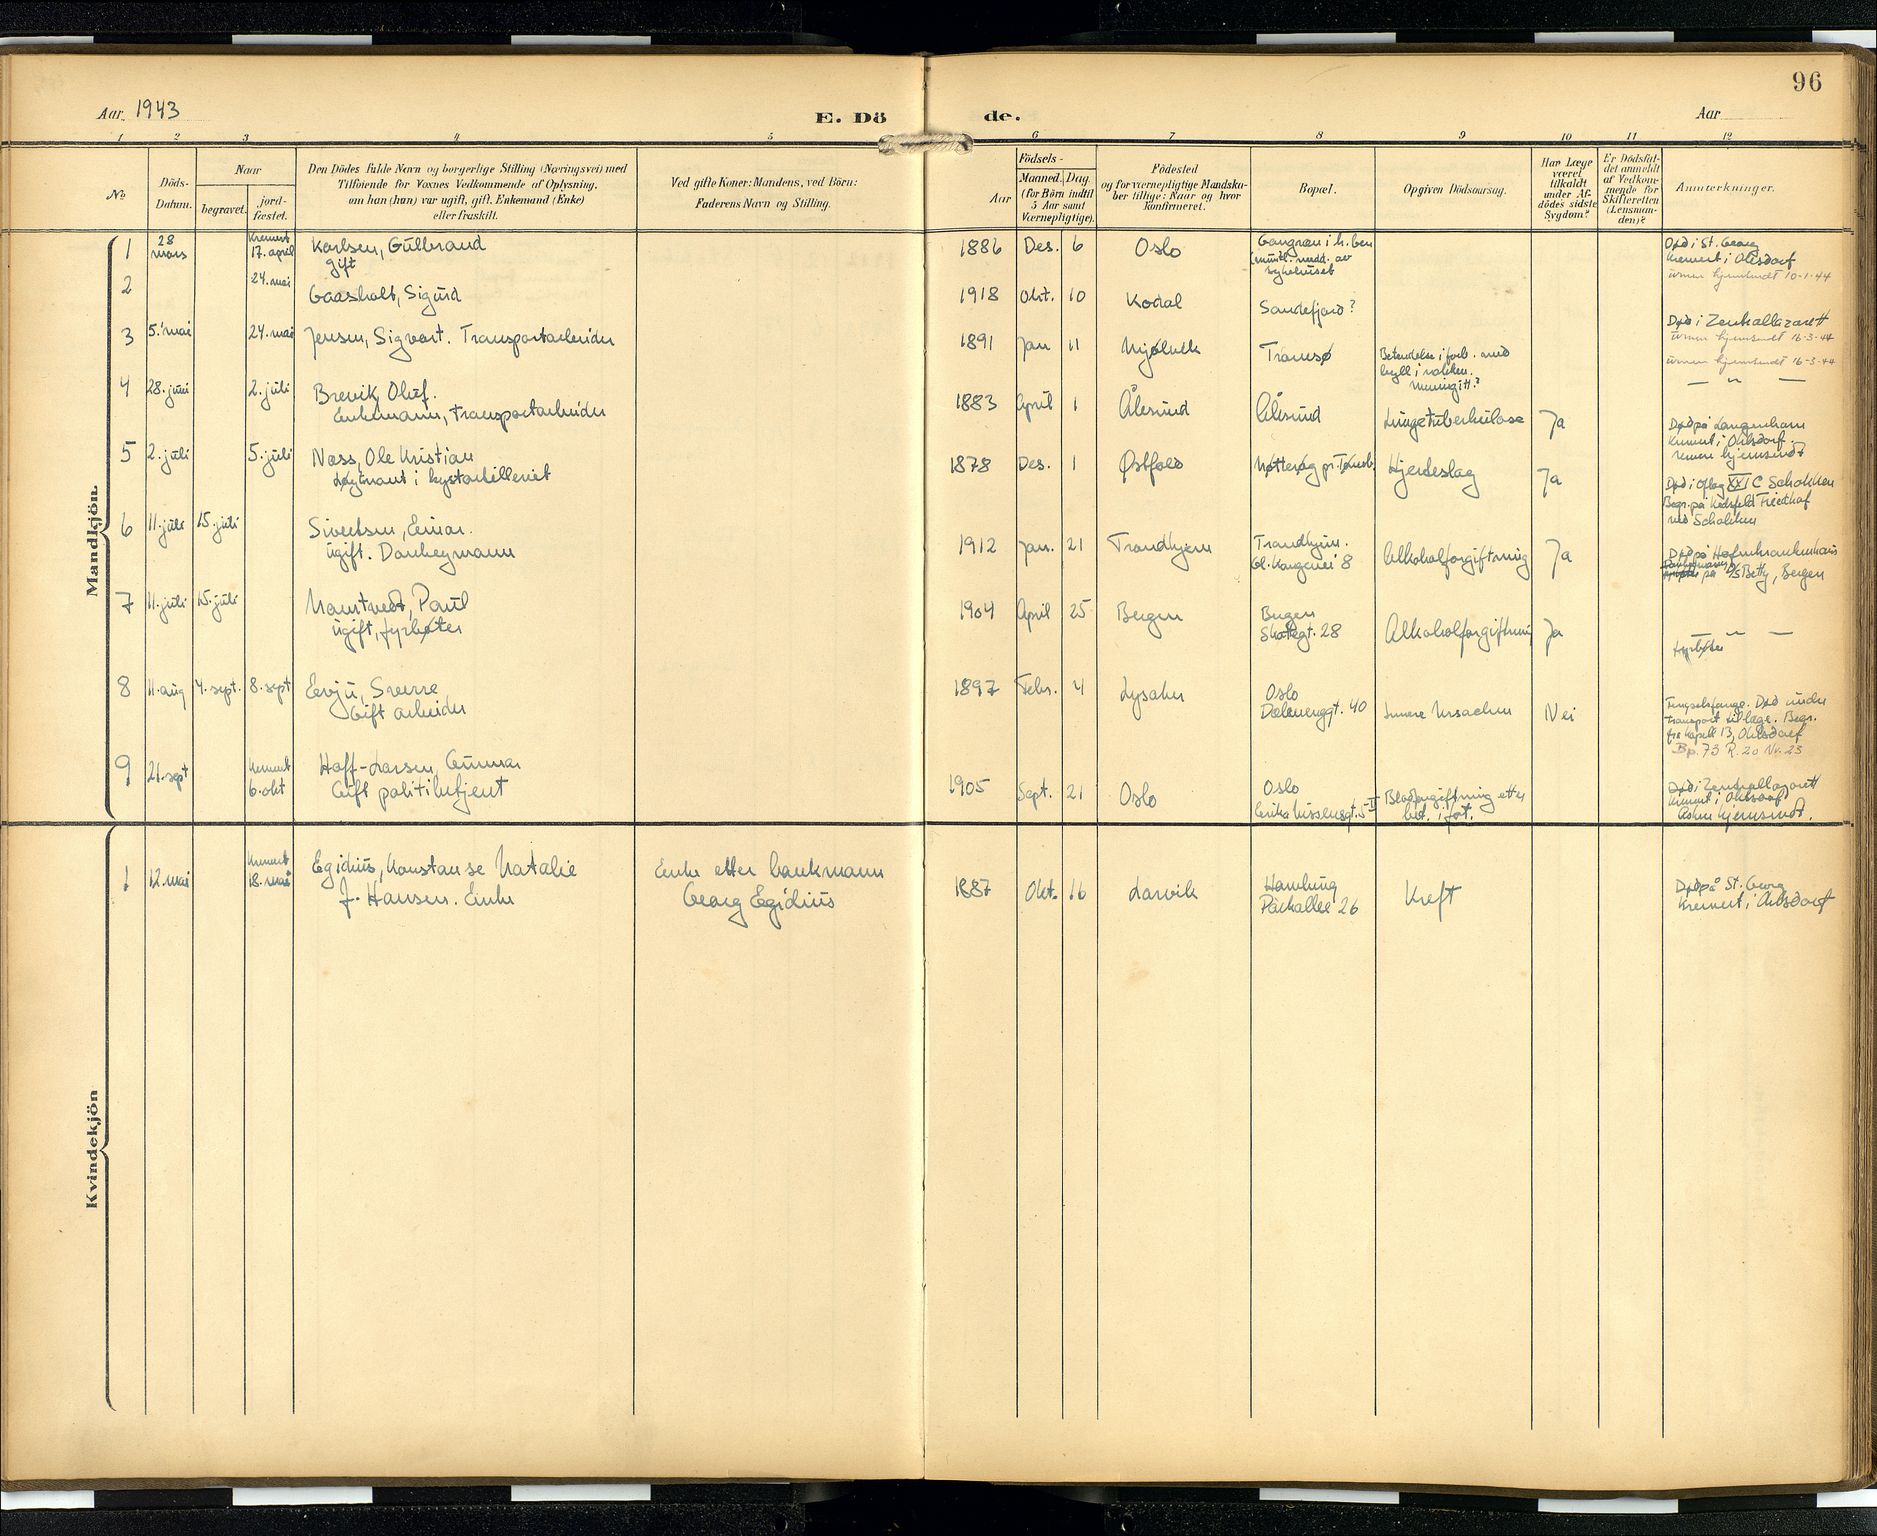 96
Aar 1943
E. Dö
de.
Aar
1 2 3 4 5 6 7 8 9 10 11 12
No
Döds-
Datum.
Naar
begravet.
jord-
fæstet.
Den Dödes fulde Navn og borgerlige Stilling (Næringsvei) med
Tilföiende for Voxnes Vedkommende af Oplysning,
om han (hun) var ugift, gift, Enkemand (Enke)
eller fraskilt.
Ved gifte Koner: Mandens, ved Börn:
Faderens Navn og Stilling.
Aar
Födsels-
Maaned. Dag.
(for Börn indtil
5 Aar samt
Værnepligtige).
Födested
og for værnepligtige Mandska-
ber tillige: Naar og hvor
konfirmeret.
Bopæl.
Opgiven Dödsaarsag.
Har Læge
været
tilkaldt
under Af-
dödes sidste
Sygdom?
Er Dödsfal-
det anmeldt
af Vedkom-
mende for
Skifteretten
(Lensman-
den)?
Anmærkninger.
Mandkjön.
1
28
mars
Kremert
17. april
Karlsen, Gulbrand
gift
1886 Des. 6 Oslo
Gangræn i h. ben
muntl. medd. av
sykehuset
Død i St. Georg
Kremert i Ohlsdorf
urnen hjemsendt 10-1-44
2
24. mai
Gaasholt, Sigurd
1918 Okt. 10 Kodal Sandefjord?
3 5. mai 24. mai Jensen, Sigvart. Transportarbeider
1891 Jan 11 Mjølvik Tromsø
Betendelse i forb. med
byll i nakken.
Meningitt?
Død i Zentrallazarett
urnen hjemsendt 16-3-44
urnen hjemsendt 16-3-44
— " —
4 28. juni 2. juli Brevik, Oluf.
Enkemann, transportarbeider
1883 April 1 Ålesund Ålesund Lungetuberkulose Ja
Død på Langenhorn
Kremert i Ohlsdorf.
urnen hjemsendt
5 2. juli 5. juli Næss, Ole Kristian
Løytnant i kystartilleriet
1878 Des. 1 Østfold Nøtterøy pr. Tønsb. Hjerteslag Ja
Død i Oflag XXI C Schokken
Begr. på Friedhof
ved Schokken
6 11. juli 15. juli Sivertsen, Einar.
ugift. Donkeymann
1912 Jan. 21 Trondhjem
Trondhjem.
Gl. Kongevei 8
Alkoholforgiftning Ja
Død på Hafenkrankenhaus
Donkeymann
på D/S Betty, Bergen
7 11. juli 15. juli Namtvedt, Paul
ugift, fyrbøter
1904 April 25 Bergen
Bergen
Skotegt. 28
Alkoholforgiftning Ja
— " —
Fyrbøter
8 11. aug 4. sept. 8. sept Evju, Sverre
Gift arbeider
1897 Febr. 4 Lysaker
Oslo
Dælenenggt. 40
Innere Ursachen Nei
Fengselsfange. Død under
transport til læge. Begr.
fra Kapell 13, Ohlsdorf
Bp. 73 R. 20 Nr. 23
9 21. sept
Kremert
6. okt
Hoff-Larsen, Gunnar
Gift politibetjent
1905 Sept. 21 Oslo
Oslo
Erika Nissensgt. 5 II
Blodforgiftning etter
bet. i fot.
Død i Zentrallazarett
Kremert i Ohlsdorf
Asken hjemsendt.
Kvindekjön
1 12. mai
Kremert
18. mai
Egidius, Konstanse Natalie
F. Hansen. Enke
Enke etter bankmann
Georg Egidius
1887 Okt. 16 Larvik
Hamburg
Parkallee 26
Kreft
Død på St. Georg
Kremert i Ohlsdorf